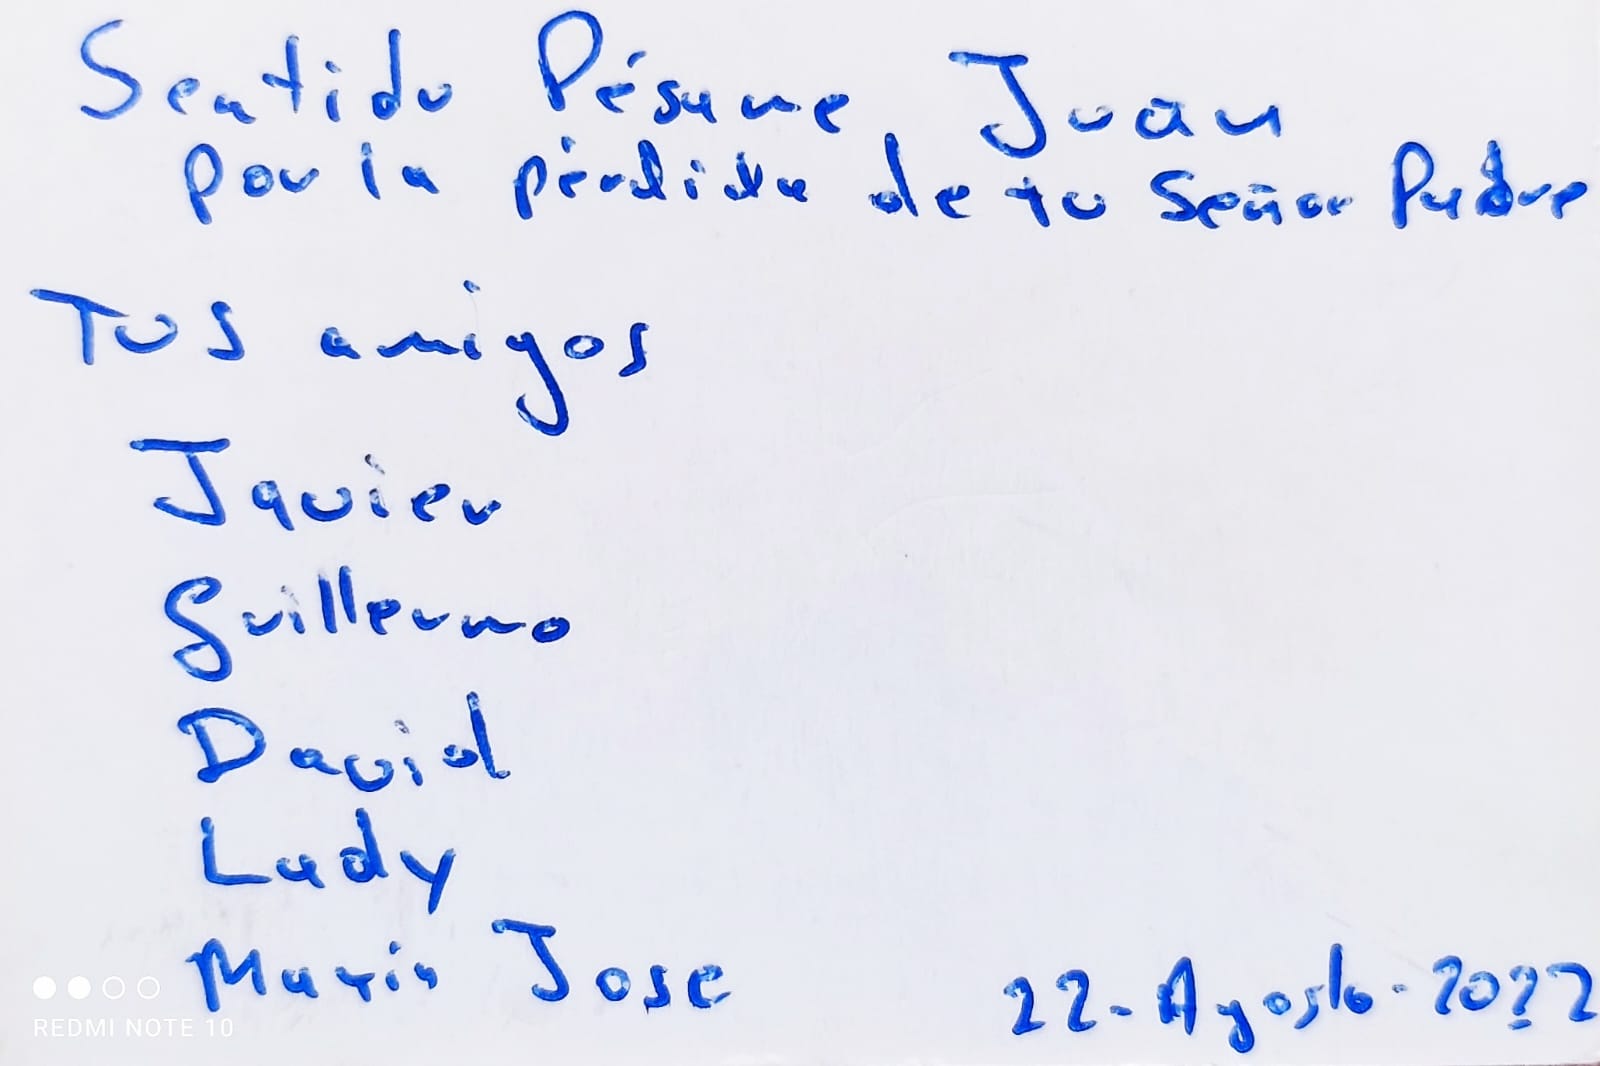 Sentido Pésame Juan
por la pérdida de tu Señor Padre
Tus amigos
Javier
Guillermo
David
Lady
Maria Jose
22-Agosto-2022
REDMI NOTE 10